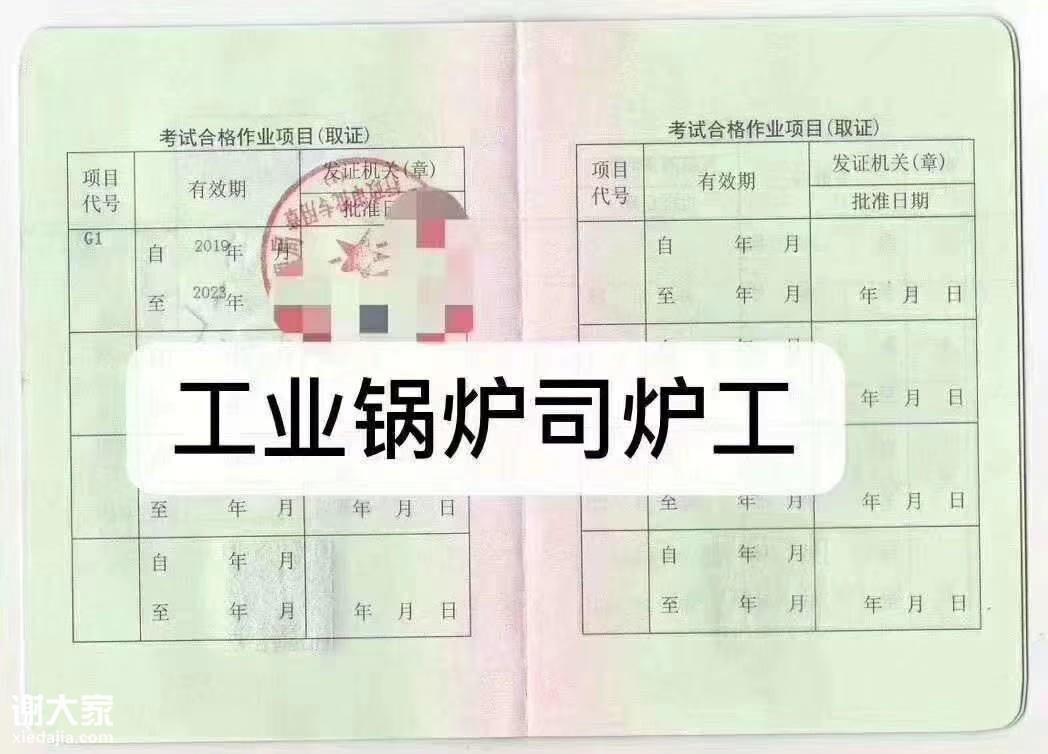 考试合格作业项目(取证)
项目代号 有效期 发证机关(章)
批准日
G1 自 2019年 月
至 2023年
至 年 月 年 月 日
自 年 月
至 年 月 年 月 日
考试合格作业项目(取证)
项目代号 有效期 发证机关(章)
批准日期
自 年 月
至 年 月 年 月 日
年 月 日
至 年 月 年 月 日
自 年 月
至 年 月 年 月 日
工业锅炉司炉工
谢大家
xiedajia.com